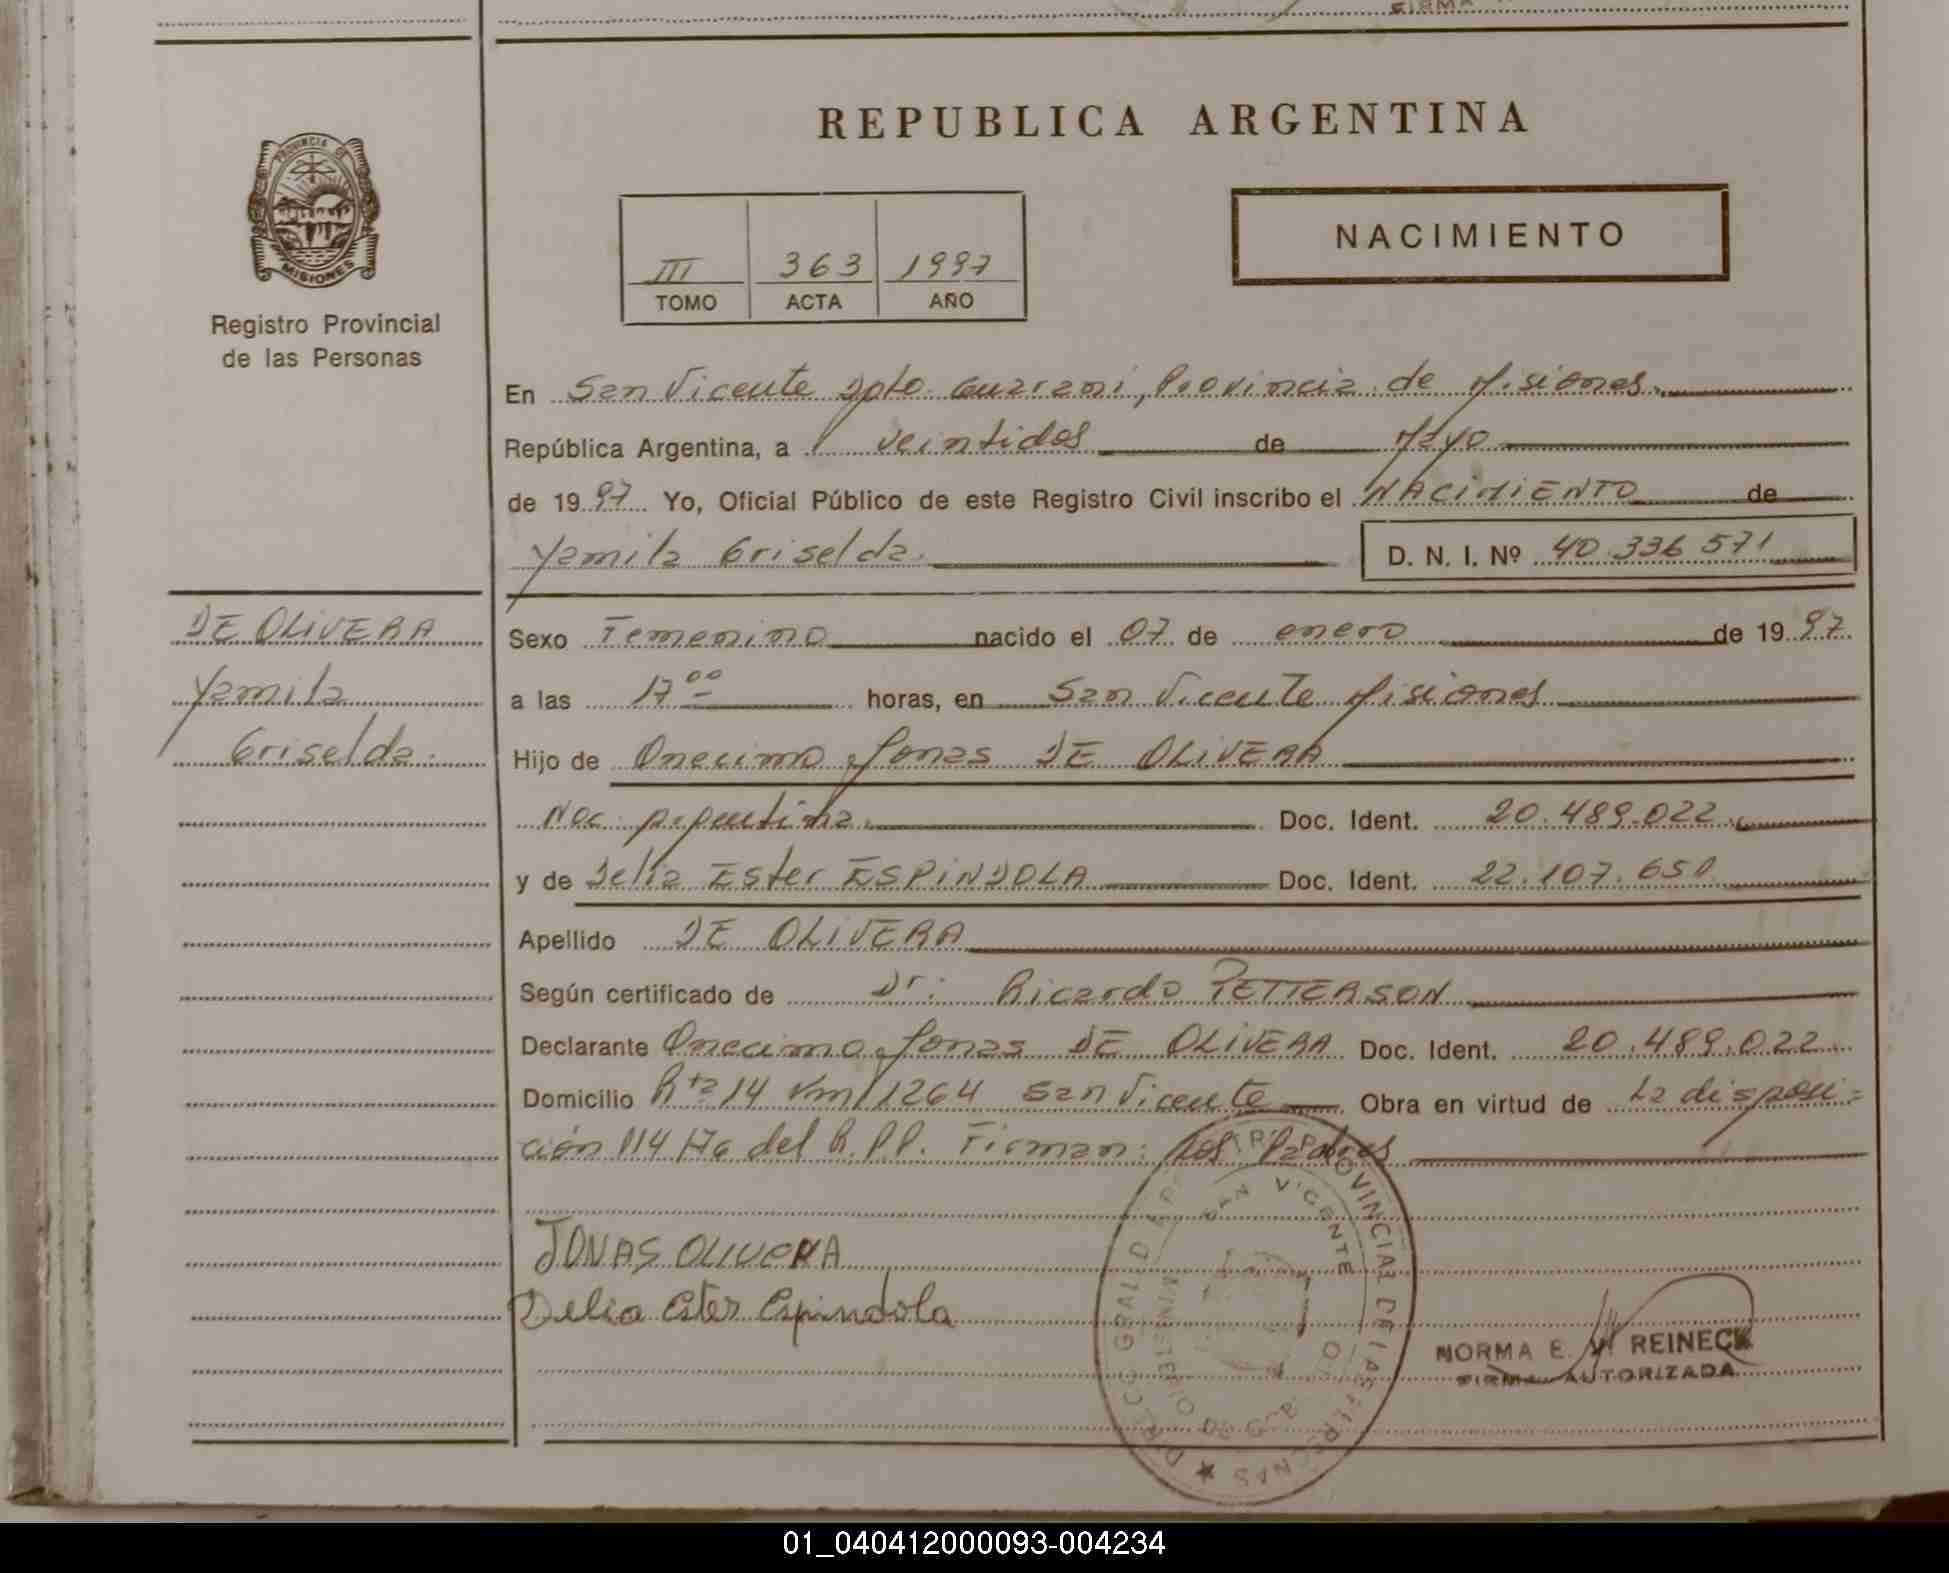 FIRMA
REPUBLICA ARGENTINA
PROVINCIA DE
MISIONES
Registro Provincial
de las Personas
III 363 1997
TOMO ACTA AÑO
NACIMIENTO
En San Vicente Dpto. Guarani, Provincia de Misiones.
República Argentina, a veintidos de Mayo
de 1997 Yo, Oficial Público de este Registro Civil inscribo el NACIMIENTO de
Yamila Griselda. D. N. I. Nº 40.336 571
DE OLIVERA
Yamila
Griselda.
Sexo Femenino nacido el 07 de enero de 1997
a las 17 00 horas, en San Vicente Misiones
Hijo de Onecimo Jonas DE OLIVERA
Nac. Doc. Ident. 20.489.022
y de Delia Ester ESPINDOLA Doc. Ident. 22.107.650
Apellido DE OLIVERA
Según certificado de Dr. Ricardo PETTERSON
Declarante Onecimo Jonas DE OLIVERA Doc. Ident. 20.489.022
Domicilio Rta 14 Km 1264 San Vicente Obra en virtud de La disposi-
ción 114/76 del R.P.P. Firman: los Padres
JONAS OLIVERA
Delia Ester Espindola
SAN VICENTE
MINISTERIO DE
NORMA E. W. REINECK
FIRMA AUTORIZADA
01_040412000093-004234